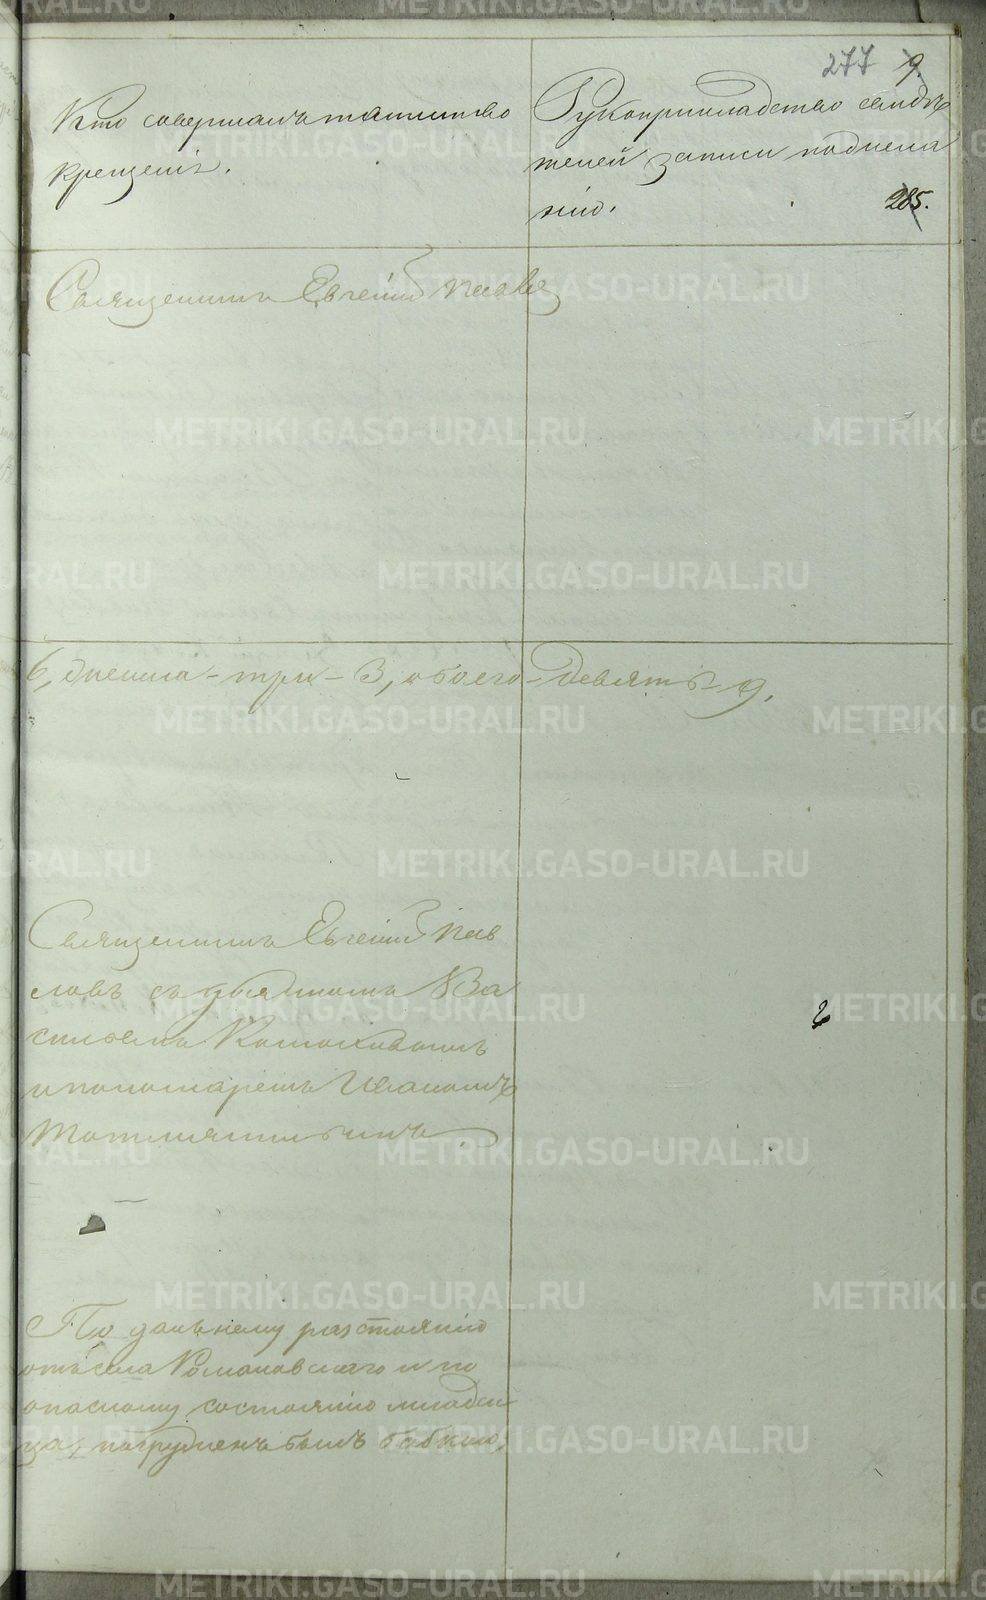 277 9.
Кто совершалъ таинство
крещенія.
Рукоприкладство свидѣ
телей записи по
нію.
285.
Священникъ Евгеній
6, женска - три - 3, обоего - девять - 9.
Священникъ Евгеній Пав
ловъ съ Ва
сильемъ
и пономаремъ Иваномъ
По дальнему разстоянію
отъ села Романовскаго и по
опасному состоянію младен
ца, погруженъ былъ бабкою.
METRIKI.GASO-URAL.RU